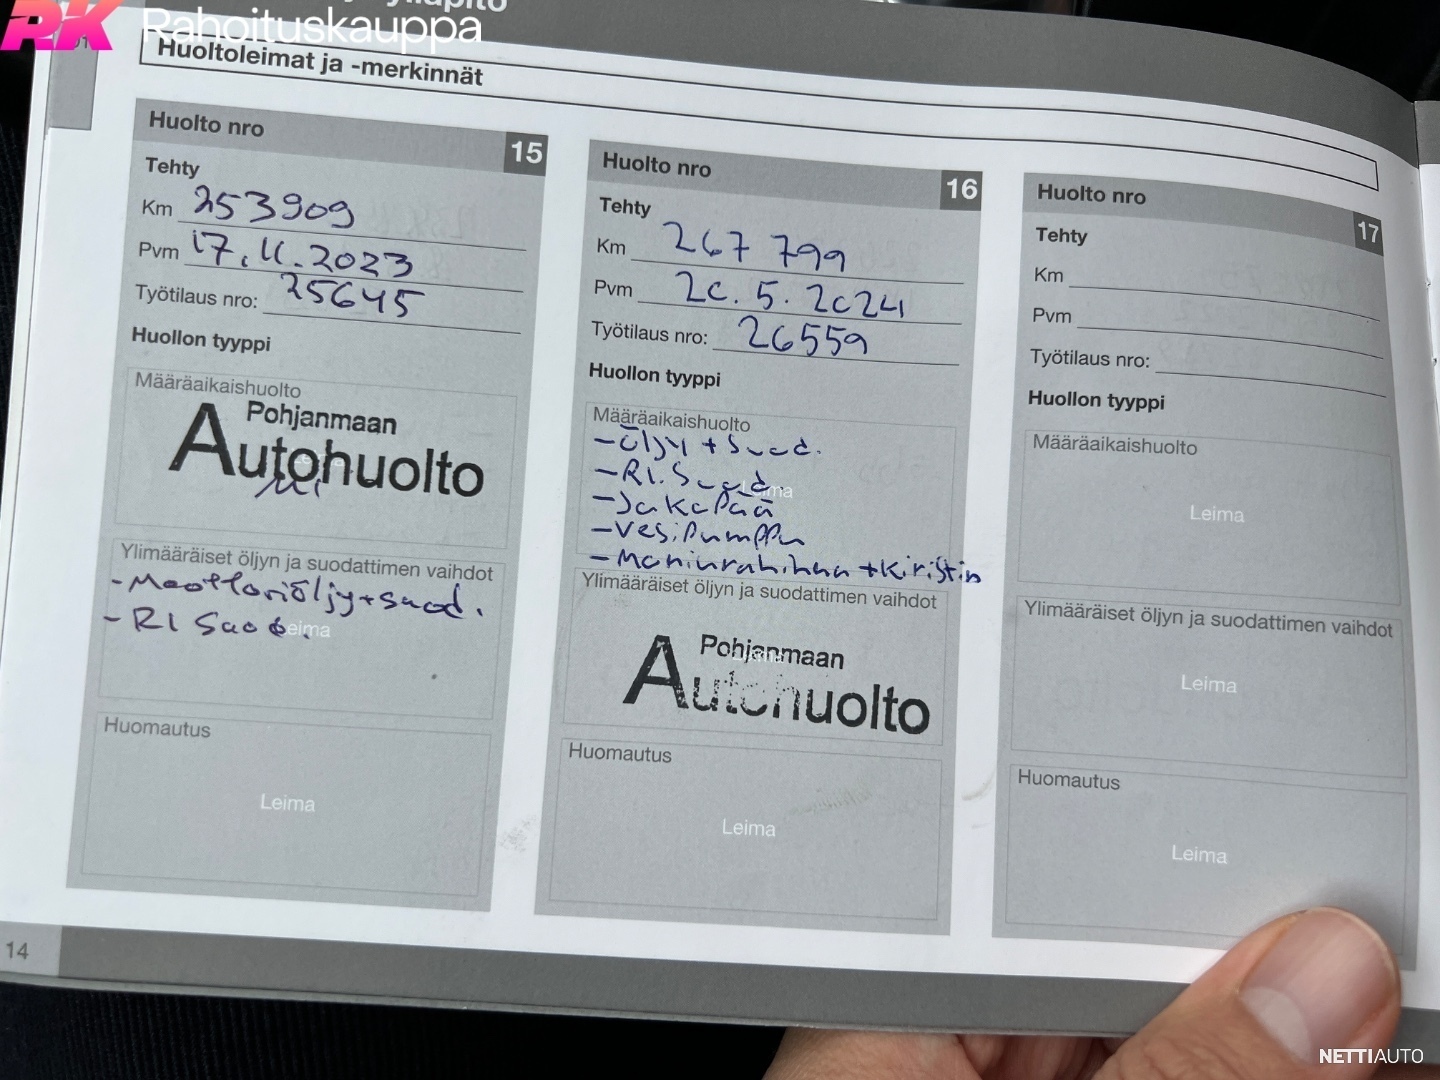 RK Rahoituskauppa
Huoltoleimat ja -merkinnät
Huolto nro 15
Tehty
Km 253909
Pvm 17.11.2023
Työtilaus nro: 25645
Huollon tyyppi
Määräaikaishuolto
Pohjanmaan
Autohuolto
Ylimääräiset öljyn ja suodattimen vaihdot
-Moottoriöljy+suod.
-RI Suod.
Leima
Huomautus
Leima
Huolto nro 16
Tehty
Km 267 799
Pvm 20.5.2024
Työtilaus nro: 26559
Huollon tyyppi
Määräaikaishuolto
-Öljy + Suod.
-RI.Suod.
Leima
-Jakopää
-Vesipumppu
-Moniurahihna +Kiristin
Ylimääräiset öljyn ja suodattimen vaihdot
Leima
Pohjanmaan
Autohuolto
Huomautus
Leima
Huolto nro 17
Tehty
Km
Pvm
Työtilaus nro:
Huollon tyyppi
Määräaikaishuolto
Leima
Ylimääräiset öljyn ja suodattimen vaihdot
Leima
Huomautus
Leima
14
NETTIAUTO